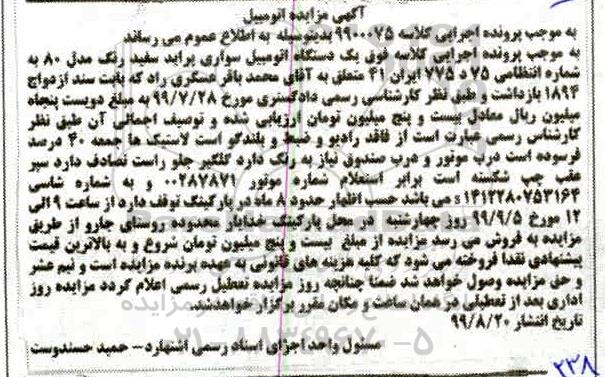 آگهی مزایده اتومبیل
به موجب پرونده اجرایی کلاسه ۹۹۰۰۰۷۵ بدینوسیله به اطلاع عموم می رساند
به موجب پرونده اجرایی کلاسه فوق یک دستگاه اتومبیل سواری پراید سفید رنگ مدل ۸۰ به
شماره انتظامی ۷۵ د ۷۷۵ ایران ۴۱ متعلق به آقای محمد باقر عسگری راد که بابت سند ازدواج
۱۸۹۴ بازداشت و طبق نظر کارشناسی رسمی دادگستری مورخ ۹۹/۷/۲۸ به مبلغ دویست پنجاه
میلیون ریال معادل بیست و پنج میلیون تومان ارزیابی شده و توصیف اجمالی آن طبق نظر
کارشناس رسمی عبارت است از فاقد رادیو و ضبط و بلندگو است لاستیک ها جمعه ۴۰ درصد
فرسوده است درب موتور و درب صندوق نیاز به رنگ دارد گلگیر جلو راست تصادف دارد سپر
عقب چپ شکسته است برابر استعلام شماره موتور ۰۰۲۸۷۸۷۱ و به شماره شاسی
s۱۴۱۲۲۸۰۷۵۳۱۶۴ می باشد حسب اظهار حدود ۸ ماه در پارکینگ توقف دارد از ساعت ۹ الی
۱۲ مورخ ۹۹/۹/۵ روز چهارشنبه در محل پارکینگ خدایار محدوده روستای جارو از طریق
مزایده به فروش می رسد مزایده از مبلغ بیست و پنج میلیون تومان شروع و به بالاترین قیمت
پیشنهادی نقدا فروخته می شود که کلیه هزینه های قانونی به عهده برنده مزایده است و نیم عشر
و حق مزایده وصول خواهد شد ضمنا چنانچه روز مزایده تعطیل رسمی اعلام گردد مزایده روز
اداری بعد از تعطیلی در همان ساعت و مکان مقرر برگزار خواهد شد.
تاریخ انتشار ۹۹/۸/۲۰
۰۲۱-۸۸۳۴۹۶۷۰-۵
مسئول واحد اجرای اسناد رسمی اشتهارد – حمید حسندوست
۲۳۸